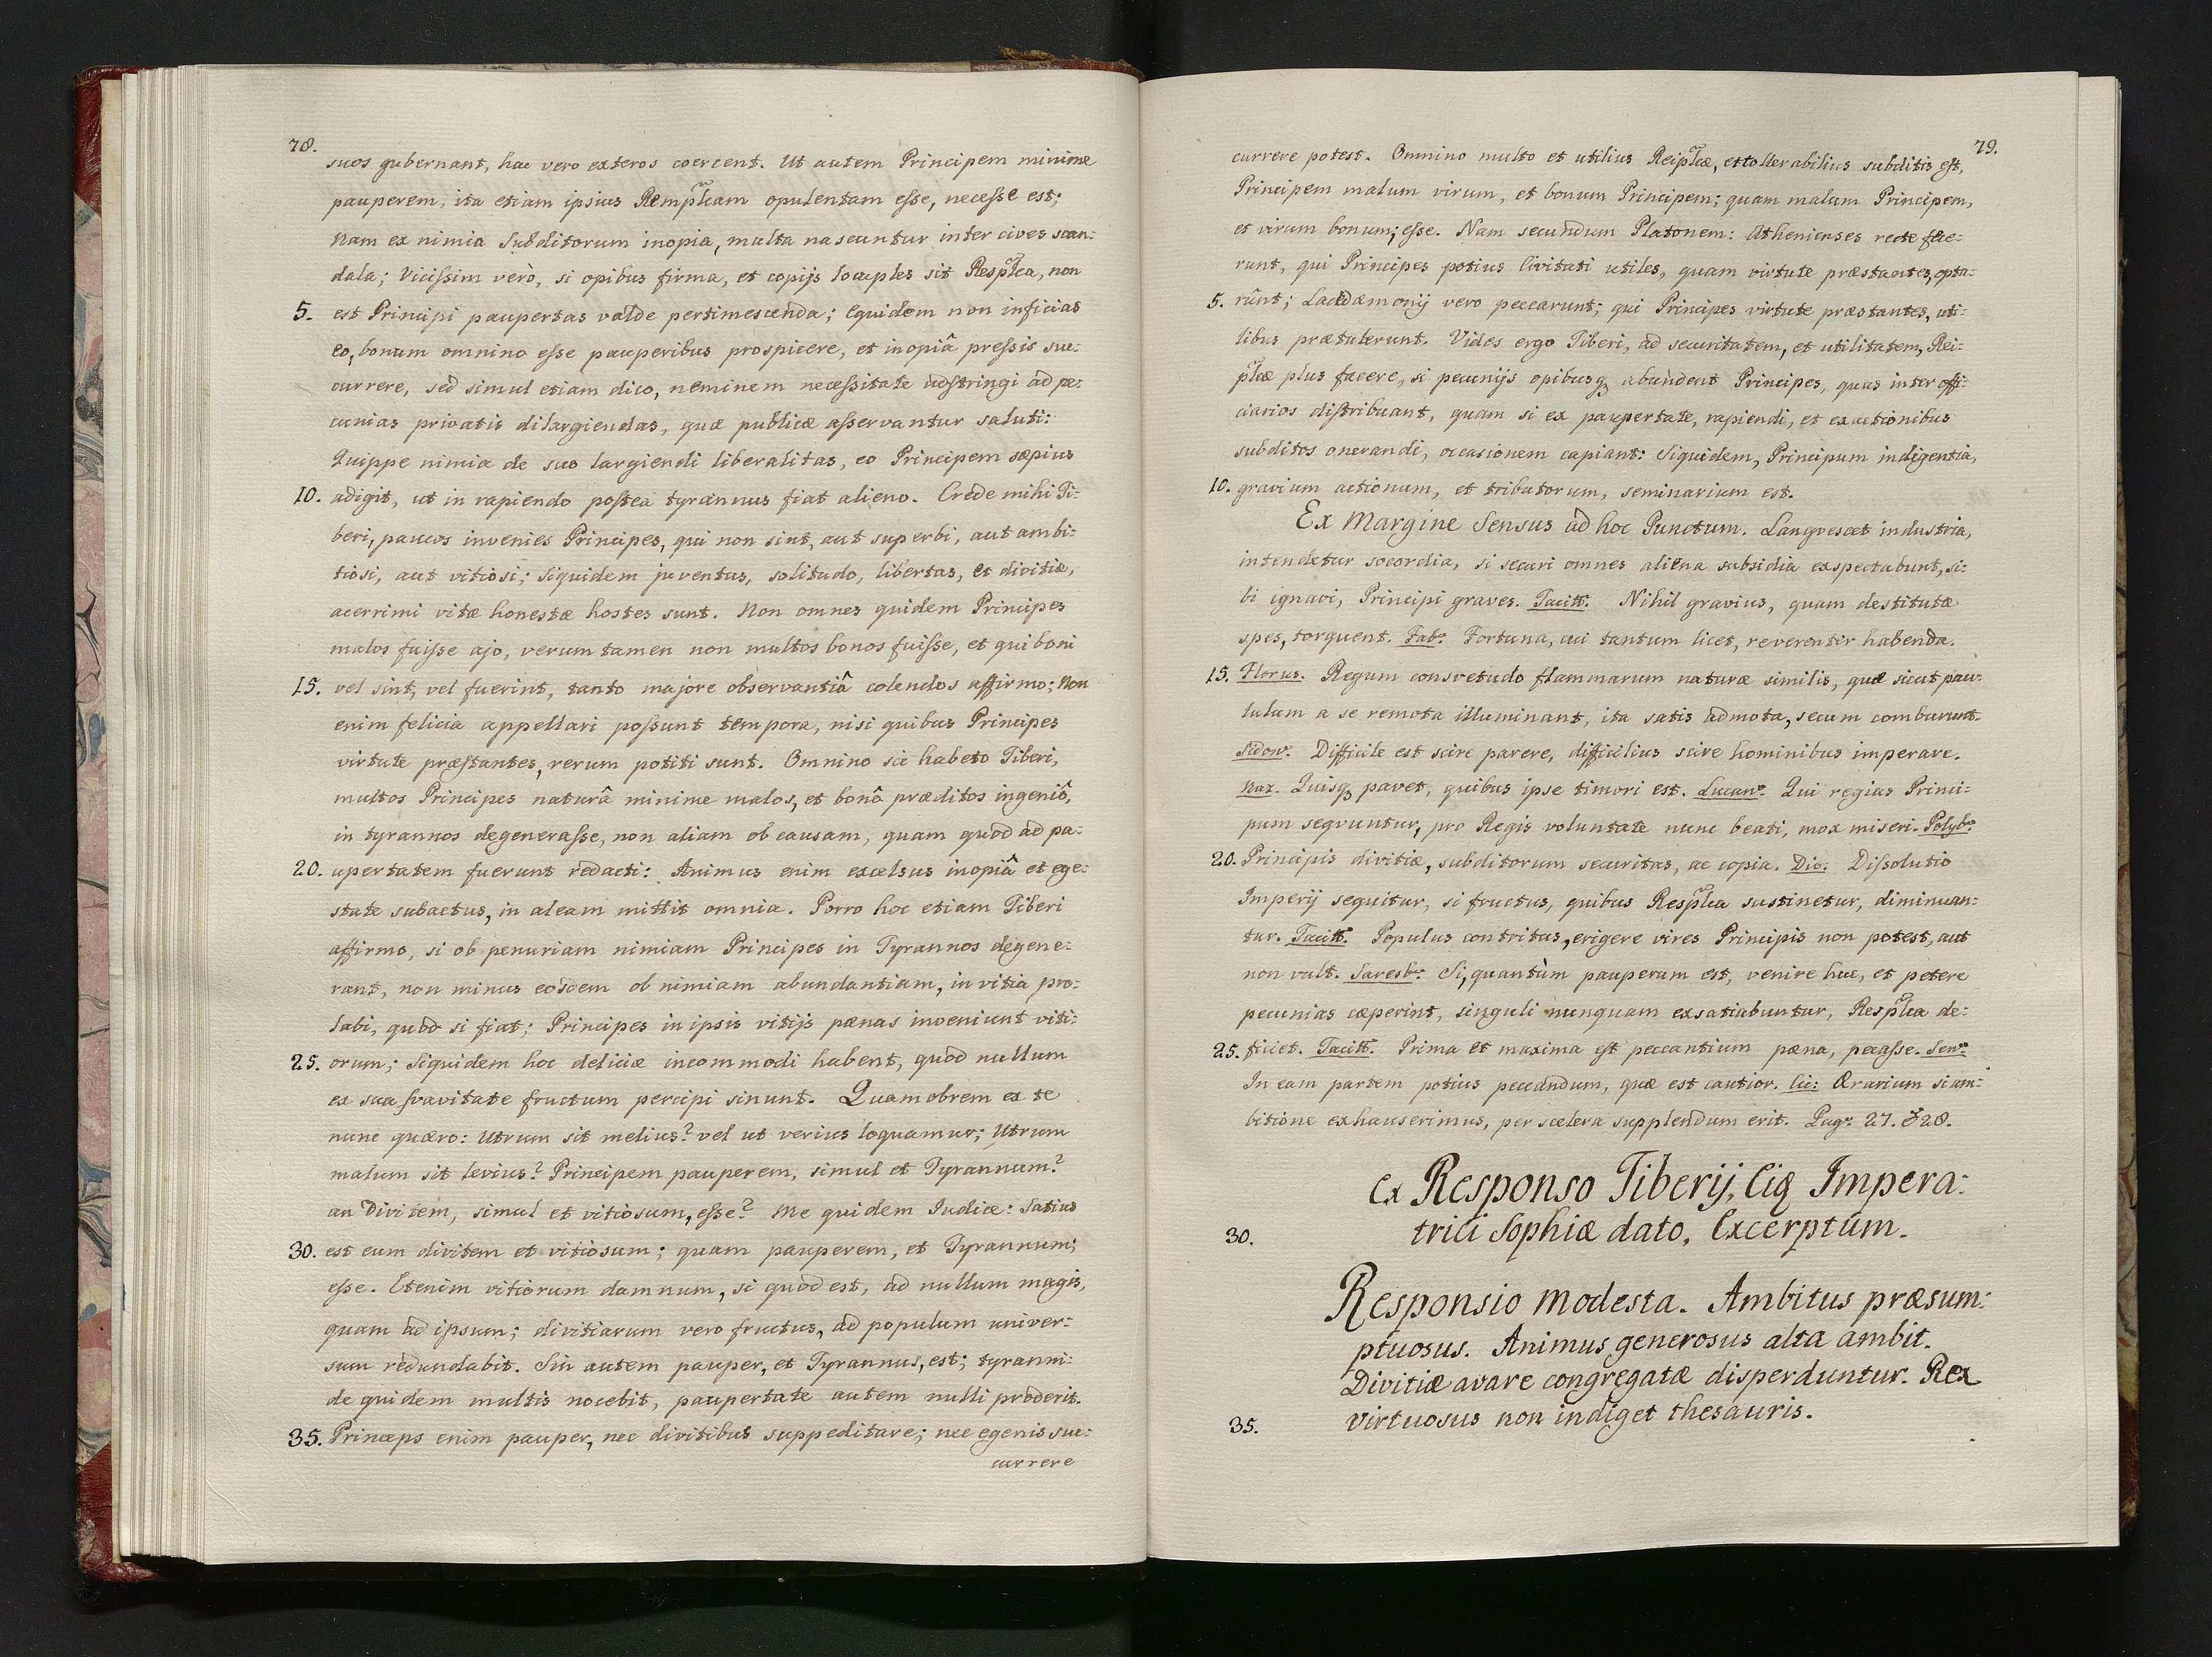 78.
suos gubernant, hac vero exteros coercent. Ut autem Principem minime
pauperem, ita etiam ipsius Remplcam opulentam esse, necesse est;
Nam ex nimia Subditorum inopia, multa nascuntur inter cives scan:
dala; Vicissim verò, si opibus firma, et copijs locuples sit Resplca, non
5. est Principi paupertas valde pertimescenda; Equidem non inficias
eo, bonum omnino esse pauperibus prospicere, et inopiâ pressis suc:
currere, sed simul etiam dico, neminem necessitate adstringi ad pe:
cunias privatis dilargiendas, quæ publicæ asservantur saluti:
Quippe nimia de suo largiendi liberalitas, eo Principem sæpius
10. adigit, ut in rapiendo postea tyrannus fiat alieno. Crede mihi Ti:
beri, paucos invenies Principes, qui non sint, aut superbi, aut ambi:
tiosi, aut vitiosi; Siquidem juventus, solitudo, libertas, et divitiæ,
acerrimi vitæ honestæ hostes sunt. Non omnes quidem Principes
malos fuisse ajo, verum tamen non multos bonos fuisse, et qui boni
15. vel sint, vel fuerint, tanto majore observantiâ colendos affirmo; Non
enim felicia appellari possunt tempora, nisi quibus Principes
virtute præstantes, rerum potiti sunt. Omnino sic habeto Tiberi,
multos Principes naturâ minime malos, et bonô præditos ingeniô,
in tyrannos degenerasse, non aliam ob causam, quam quod ad pa:
20. upertatem fuerunt redacti: Animus enim excelsus inopiâ et ege:
state subactus, in aleam mittit omnia. Porro hoc etiam Tiberi
affirmo, si ob penuriam nimiam Principes in Tyrannos degene:
rant, non minus eosdem ob nimiam abundantiam, in vitia pro:
labi, quod si fiat; Principes in ipsis vitijs pænas inveniunt viti:
25. orum; Siquidem hoc deliciæ incommodi habent, quod nullum
ex sua suavitate fructum percipi sinunt. Quamobrem ex te
nunc quæro: Utrum sit melius? vel ut verius loquamur; Utrum
malum sit levius? Principem pauperem, simul et Tyrannum?
an Divitem, simul et vitiosum, esse? Me quidem Iudice: Satius
30. est eum divitem et vitiosum; quam pauperem, et Tyrannum;
esse. Etenim vitiorum damnum, si quod est, ad nullum magis,
quam ad ipsum; divitiarum vero fructus, ad populum univer:
sum redundabit. Sin autem pauper, et Tyrannus, est; tyranni:
de quidem multis nocebit, paupertate autem nulli proderit.
35. Princeps enim pauper, nec divitibus suppeditare; nec egenis suc:
currere
79.
currere potest. Omnino multo et utilius Reiplcæ, et tollerabilius subditis est,
Principem malum virum, et bonum Principem; quam malum Principem,
et virum bonum; esse. Nam secundum Platonem: Athenienses recte fece:
runt, qui Principes potius Civitati utiles, quam virtute præstantes, opta:
5. rûnt; Lacedæmonij vero peccarunt; qui Principes virtute præstantes, uti:
libus prætulerunt. Vides ergo Tiberi, ad securitatem, et utilitatem, Rei:
plcæ plus facere, si pecunijs opibusq3 abundent Principes, quas inter offi:
ciarios distribuant, quam si ex paupertate, rapiendi, et exactionibus
subditos onerandi, occasionem capiant: Siquidem, Principum indigentia,
10. gravium actionum, et tributorum, seminarium est.
Ex Margine Sensus ad hoc Punctum. Langvescet industria,
intendetur socordia, si securi omnes aliena subsidia exspectabunt, si:
bi ignavi, Principi graves. Tacitt. Nihil gravius, quam destitutæ
spes, torquent. Fab. Fortuna, cui tantum licet, reverenter habenda.
15. Florus. Regum consvetudo flammarum naturæ similis, quæ sicut pau:
lulum a se remota illuminant, ita satis admota, secum comburunt.
Sidon. Difficile est scire parere, difficilius scire hominibus imperare.
Naz. Quisq3 pavet, quibus ipse timori est. Lucan. Qui regias Princi:
pum sequuntur, pro Regis voluntate nunc beati, mox miseri. Polyb.
20. Principis divitiæ, subditorum securitas, ac copia. Dio: Dissolutio
Imperij sequitur, si fructus, quibus Resplca sustinetur, diminuan:
tur. Tacitt. Populus contritus, erigere vires Principis non potest, aut
non vult. Saresb. Si, quantùm pauperum est, venire huc, et petere
pecunias cæperint, singuli nunquam exsatiabuntur, Resplca de:
25. ficiet. Tacitt. Prima et maxima est peccantium pæna, peccasse. Sen.
In eam partem potius peccandum, quæ est cautior. Cic: Ærarium si am:
bitione exhauserimus, per scelera supplendum erit. Pag. 27. & 28.
Ex Responso Tiberij, Eiq Impera:
30. trici Sophiæ dato, Excerptûm.
Responsio modesta. Ambitus præsum:
ptuosus. Animus generosus alta ambit.
Divitiæ avare congregatæ disperduntur. Rex
35. virtuosus non indiget thesauris.